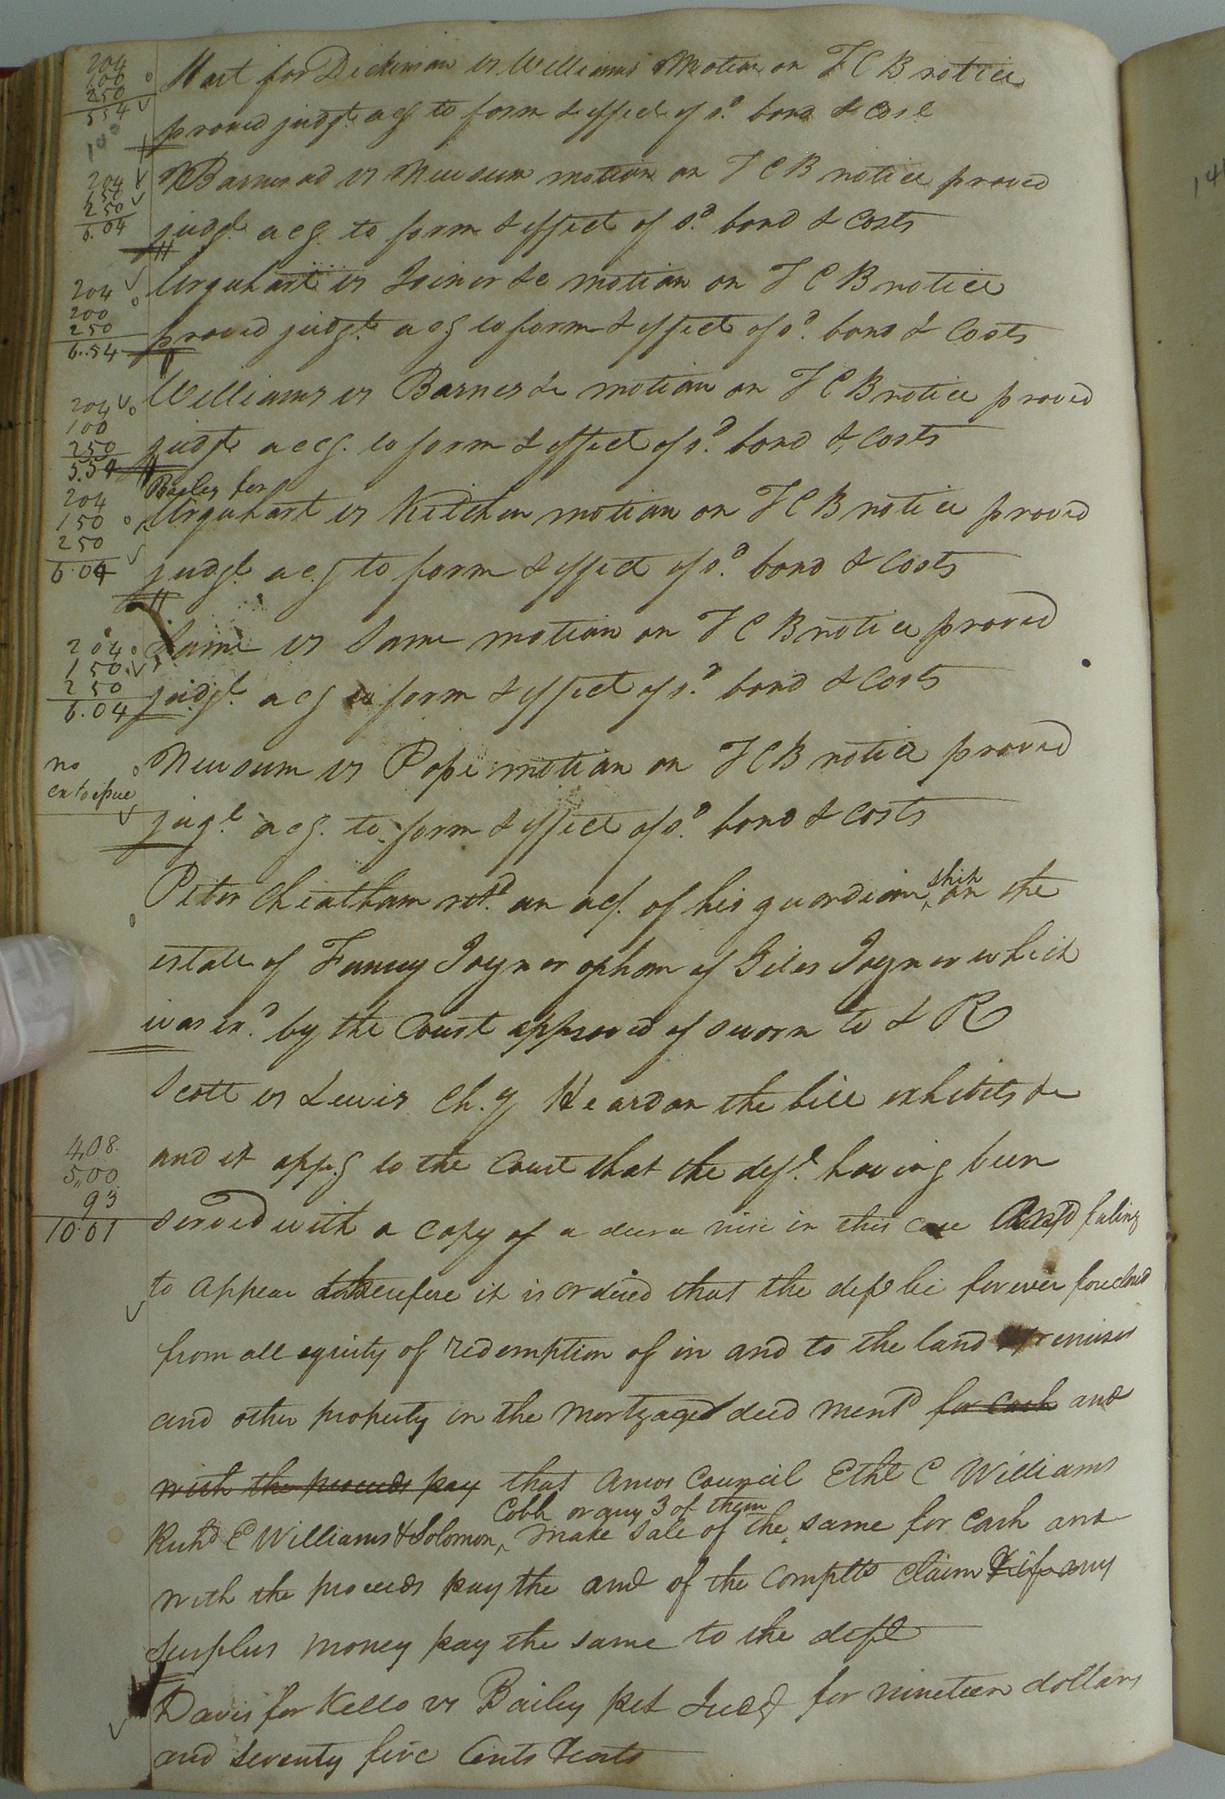 204
100
250
5.54
Hart for Dickinson vs Williams Motion on F C B notice
proved judgt. acg to form & effect of sd. bond & Cost
204
150
250
6.04
Barns ad vs Newsum motion on F C B notice proved
judgt. acg. to form & effect of sd. bond & Costs
204
200
250
6.54
Urquhart vs Joiner &c motion on F C B notice
proved judgt. acg to form & effect of sd. bond & Costs
204
100
250
5.54
Williams vs Barnes &c motion on F C B notice proved
judgt accg. to form & effect of sd. bond & Costs
Bailey for
204
150
250
6.04
Urquhart vs Kitchen motion on F C B notice proved
judgt. acg to form & effect of sd. bond & Costs
204
150
250
6.04
Same vs Same motion on F C B notice proved
judgt. acg to form & effect of sd. bond & Costs
no
Newsum vs Pope motion on F C B notice proved
jugt. acg. to form & effect of sd. bond & Costs
Peter Cheatham retd. an act. of his guardian ship on the
estate of Fanny Joyner ophan of Giles Joyner which
was exd. by the Court approved of sworn to & R
Scott vs Lewis Ch. y Heard on the bill exhibits &c
and it appg to the Court that the deft. having been
4.08
5.00
93
10.01
served with a copy of a decree nisi in this case and failing
to appear therefore it is ordered that the deft be forever foreclosed
from all equity of redemption of in and to the land & premises
and other property in the mortgaged deed mentd for cash and
with the proceeds pay that Amos Council Ethl C Williams
Cobb or any 3 of them
Richd E Williams & Solomon make sale of the same for Cash and
with the proceeds pay the amt of the Complts claim & if any
surplus money pay the same to the deft
Davis for Kello vs Bailey pet Judgt for nineteen dollars
and seventy five Cents & costs